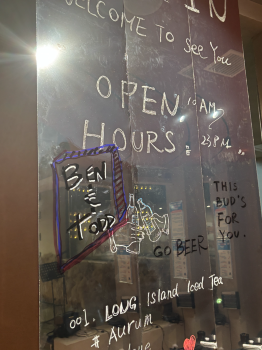 IN
WELCOME TO See You
OPEN 10AM-
HOURS: 23PM.
BEN
&
TODD
THIS
BUD'S
FOR
YOU.
GO BEER
001. LONG Island Iced Tea
# AURUM